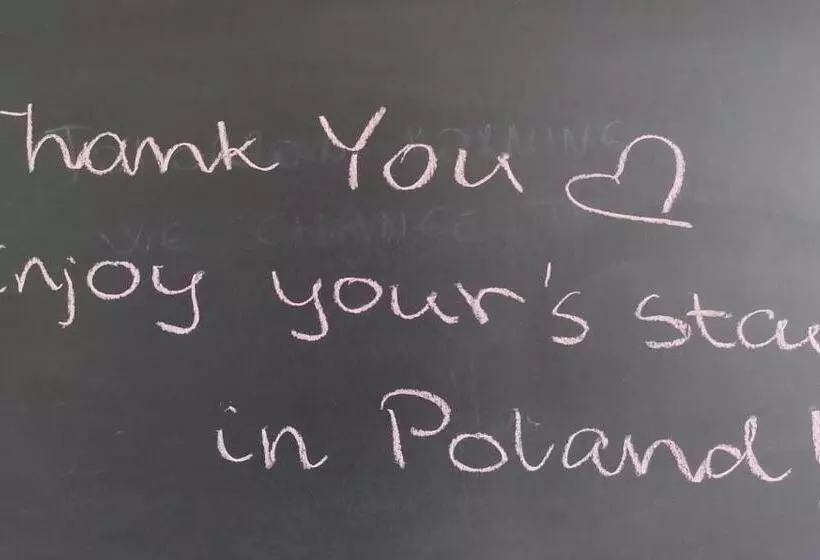 Thank You ♡
Enjoy your's stay
in Poland!